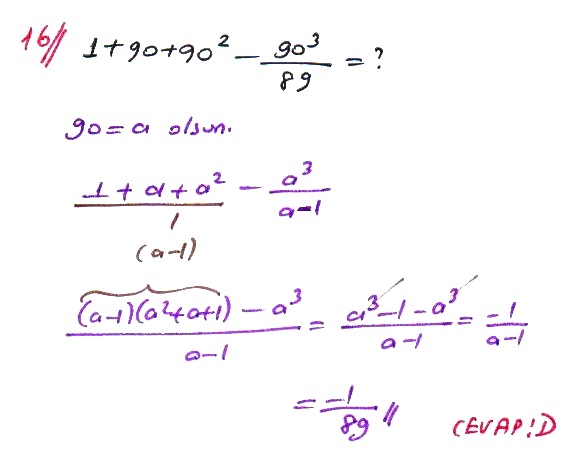 16// 1+90+90² − 90³/89 = ?
90=a olsun.
(1+a+a²)/1 − a³/(a−1)
(a−1)
((a−1)(a²+a+1) − a³)/(a−1) = (a³−1−a³)/(a−1) = −1/(a−1)
= −1/89 //
CEVAP:D